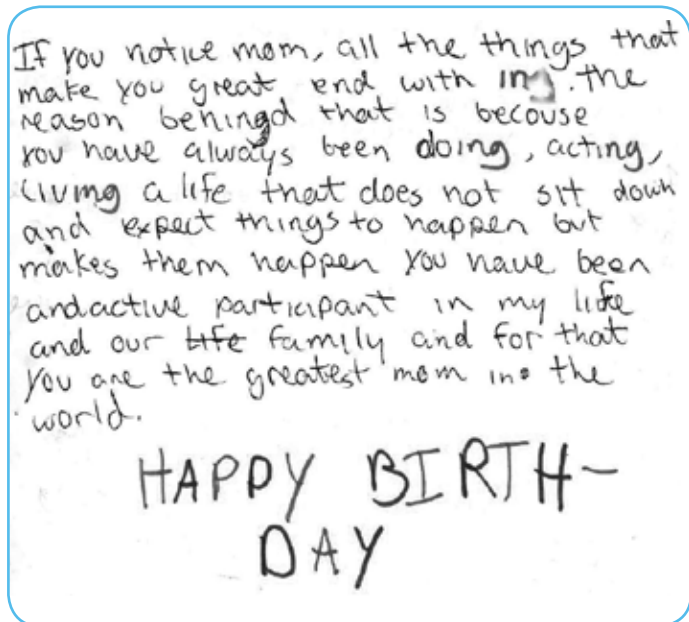 If you notice mom, all the things that
make you great end with ing. the
reason beningd that is becouse
you have always been doing, acting,
living a life that does not sit down
and expect things to happen but
makes them happen you have been
andactive participant in my life
and our life family and for that
you are the greatest mom in the
world.
HAPPY BIRTH-
DAY